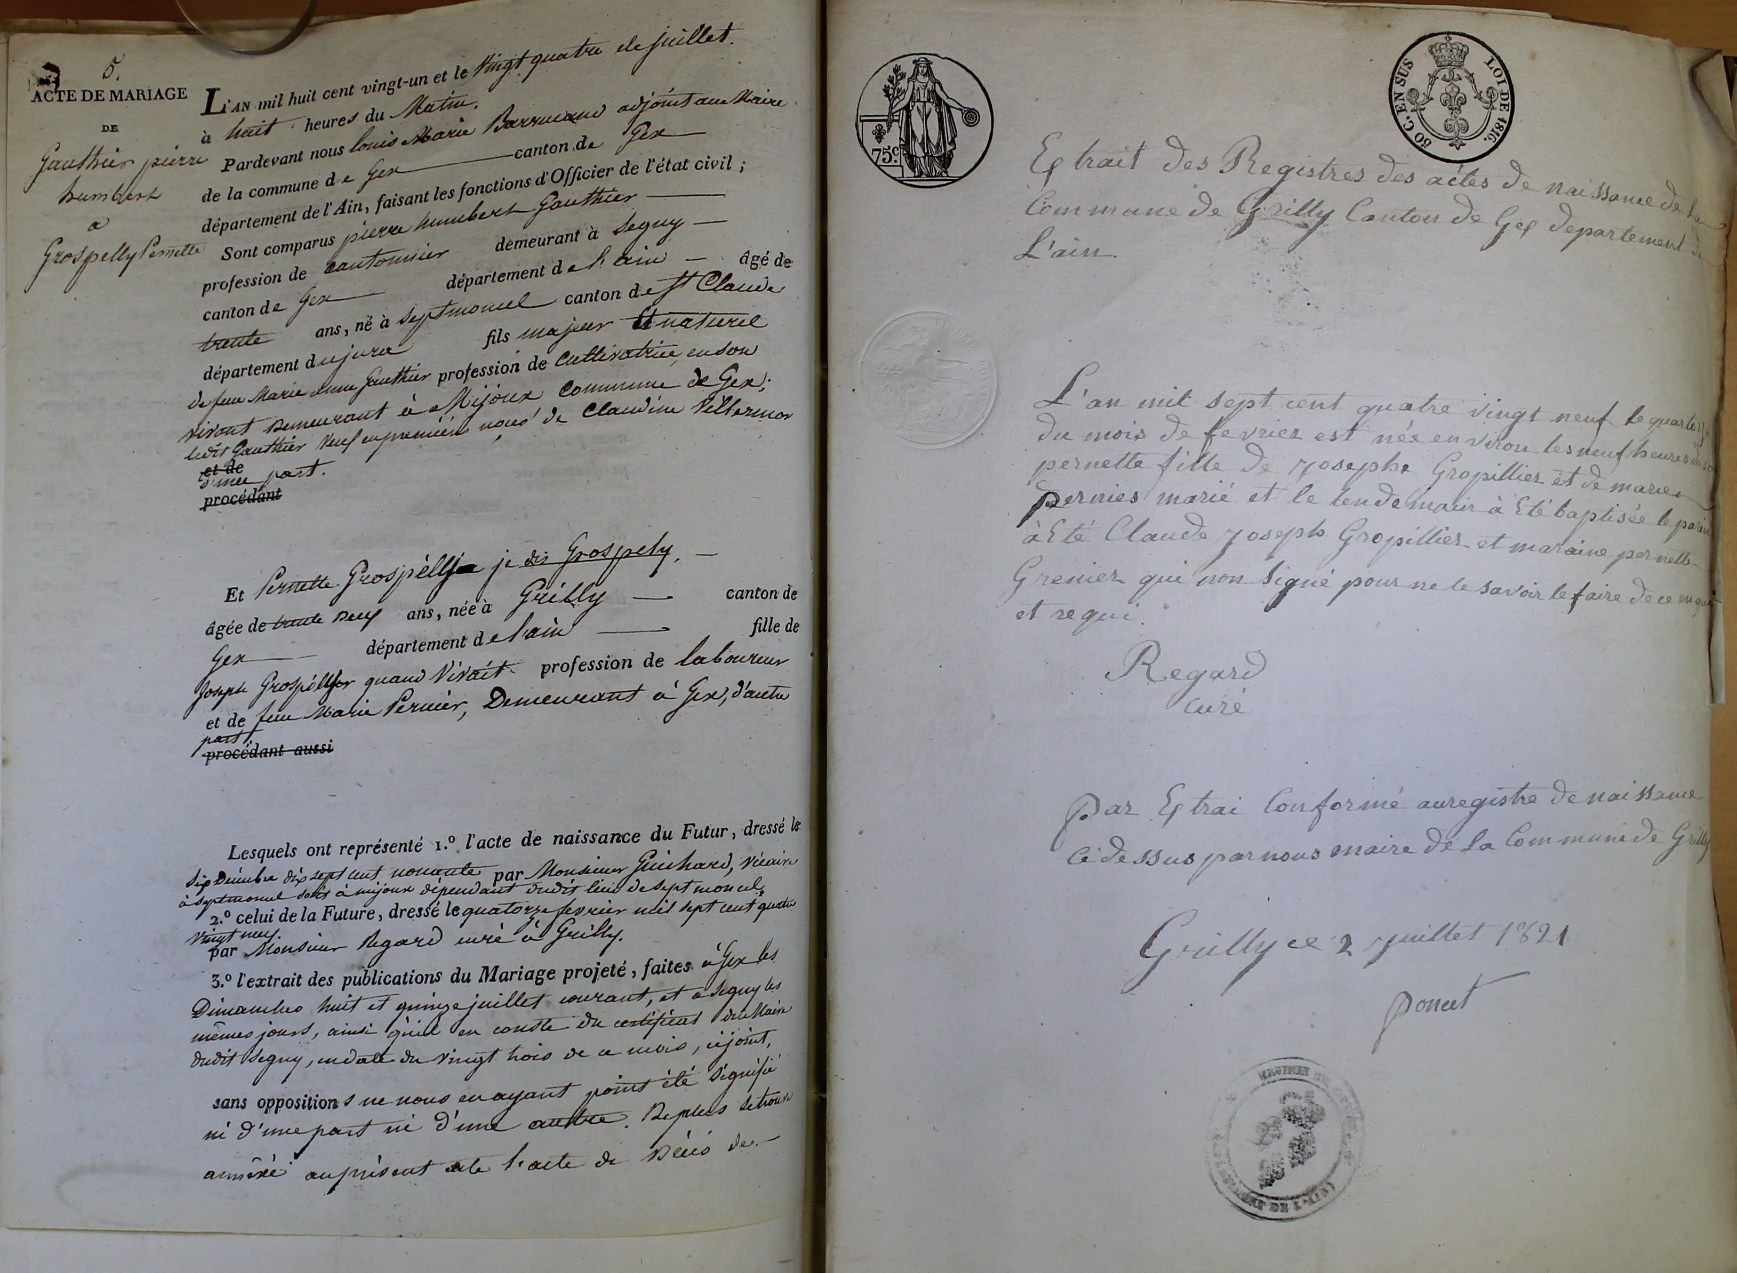 5.
ACTE DE MARIAGE
DE
Gauthier pierre
humbert
a
Grospelly Pernette
L'AN mil huit cent vingt-un et le vingt quatre de juillet.
à huit heures du Matin.
Pardevant nous louis Marie Barruccand adjoint au Maire
de la commune de Gex canton de Gex
département de l'Ain, faisant les fonctions d'Officier de l'état civil ;
Sont comparus pierre humbert Gauthier
profession de cantonnier demeurant à Segny
canton de Gex département de l'ain âgé de
trente ans, né à Septmoncel canton de St Claude
département du jura fils majeur et naturel
de feue Marie anne Gauthier profession de cultivatrice, en son
vivant Demeurant à Mijoux Commune de Gex ;
ledit Gauthier veuf en premières noces de Claudine Villermoz
et de
d'une part.
procédant
Et Pernette Grospellier je dis Grospely.
âgée de trente deux ans, née à Grilly canton de
Gex département de l'ain fille de
Joseph Grospellier quand vivait profession de laboureur
et de feue Marie Pernier, Demeurant à Gex, d'autre
part.
procédant aussi
Lesquels ont représenté 1.º l'acte de naissance du Futur, dressé le
six Décembre dix sept cent nonante par Monsieur Guichard, vicaire
à Septmoncel à mijoux dépendant dudit lieu de Septmoncel,
2.º celui de la Future, dressé le quatorze fevrier mil sept cent quatre
vingt neuf.
par Monsieur Regard curé à Grilly.
3.º l'extrait des publications du Mariage projeté, faites à Gex les
Dimanches huit et quinze juillet courant, et à Segny les
mêmes jours, ainsi qu'il en conste du certificat du Maire
dudit Segny, en date du vingt trois de ce mois, ci joint,
sans oppositions ne nous en ayant point été signifié
ni d'une part ni d'une autre. De plus se trouve
annéxé au présent acte l'acte de Décès de
75 C.
50 C. EN SUS LOI DE 1816.
Extrait des Registres des actes de naissance de La
Commune de Grilly Canton de Gex departement de
L'ain.
L'an mil sept cent quatre vingt neuf le quatorze
du mois de fevrier est née environ les neuf heures
pernette fille de Josephe Gropillier et de marie
pernies marié et le lendemain à Eté baptisée le parin
à Eté Claude Joseph Gropillier et maraine pernette
Grenier qui non signé pour ne le savoir le faire de ce enquit
et requi.
Regard
Curé
Par Extrai Conformé au registre de naissance
Ci dessus par nous maire de La Commune de Grilly
Grilly ce 2 Juillet 1821
Poncet